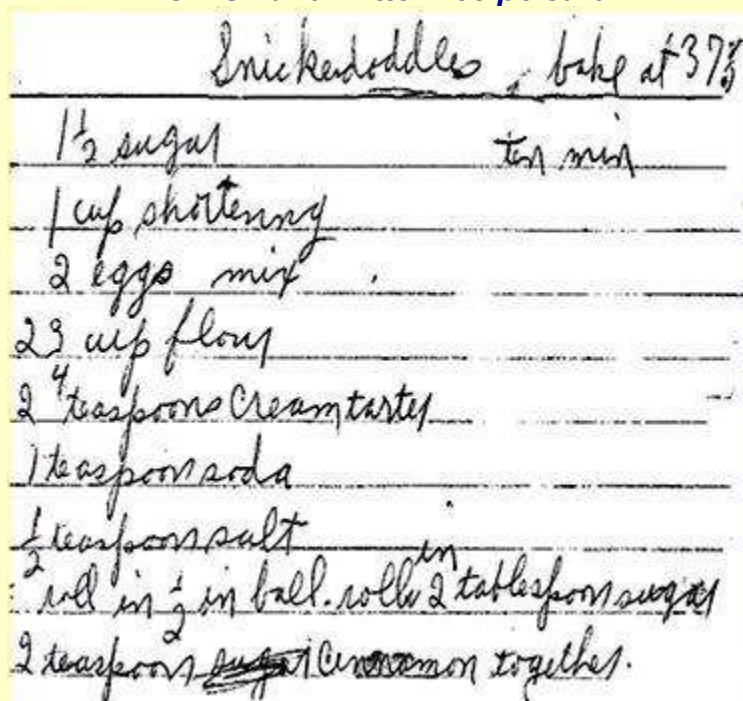 Snickerdoddles, bake at 375
1 1/2 sugar ten min
1 cup shortening
2 eggs mix
2 3/4 cup flour
2 teaspoons Cream tarter
1 teaspoon soda
1/2 teaspoon salt
roll in 1/2 in ball. roll in 2 tablespoon sugar
2 teaspoon cinnamon together.